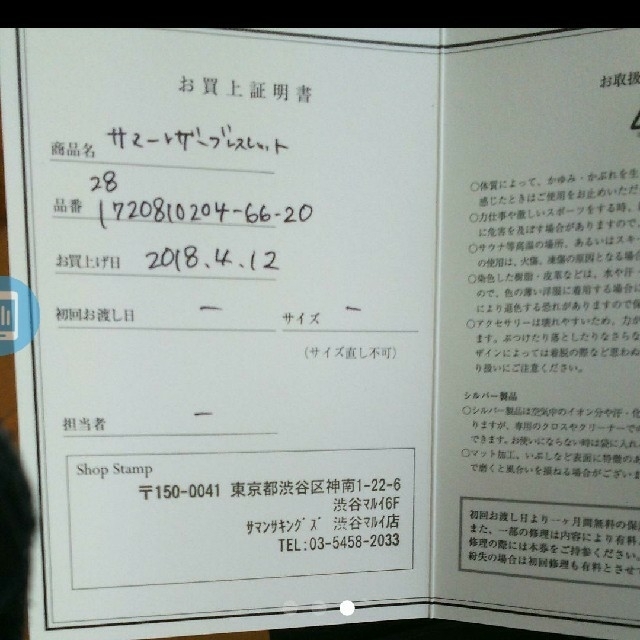 お買上証明書
商品名 サマーレザーブレスレット
28
品番 1720810204-66-20
お買上げ日 2018.4.12
初回お渡し日 ー サイズ ー
(サイズ直し不可)
担当者 ー
Shop Stamp
〒150-0041 東京都渋谷区神南1-22-6
渋谷マルイ6F
サマンサキングズ 渋谷マルイ店
TEL:03-5458-2033
お取扱
○体質によって、かゆみ・かぶれを生
感じたときはご使用をお止めいただ
○力仕事や激しいスポーツをする時、
に危害を及ぼす場合がありますので、
○サウナ等高温の場所、あるいはスキー
の使用は、火傷、凍傷の原因となる場合
○染色した樹脂・皮革などは、水や汗
ので、色の薄い洋服に着用する場合に
により退色する恐れがありますので
○アクセサリーは壊れやすいため、力が
ます。ぶつけたり落としたりなさらな
ザインによっては着脱の際など思わぬ
り扱いにご注意ください。
シルバー製品
○シルバー製品は空気中のイオン分や汗・化
りますが、専用のクロスやクリーナーで
できます。お使いにならない時は袋に入れ
○マット加工、いぶしなど表面に特徴のあ
で磨くと風合いを損ねる場合がございま
初回お渡し日より一ヶ月間無料の保
また、一部の修理は内容により有料
修理の際には本券をご持参ください。
紛失の場合は初回修理も有料とさせて